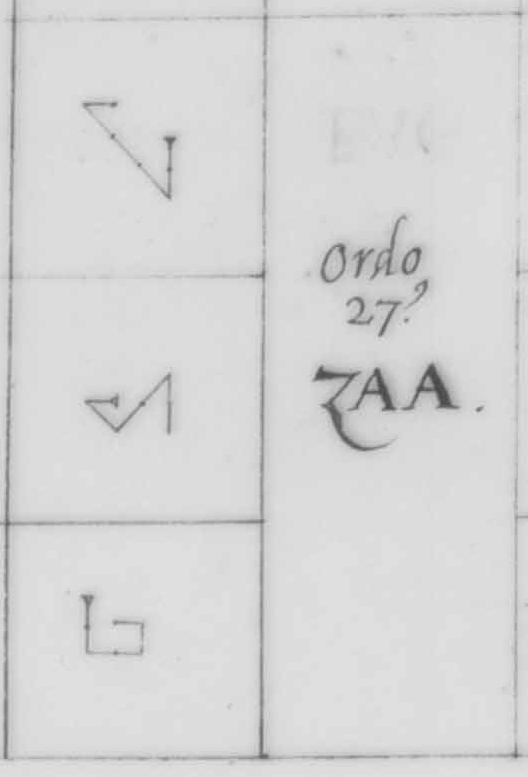 Ordo
27?
ZAA.